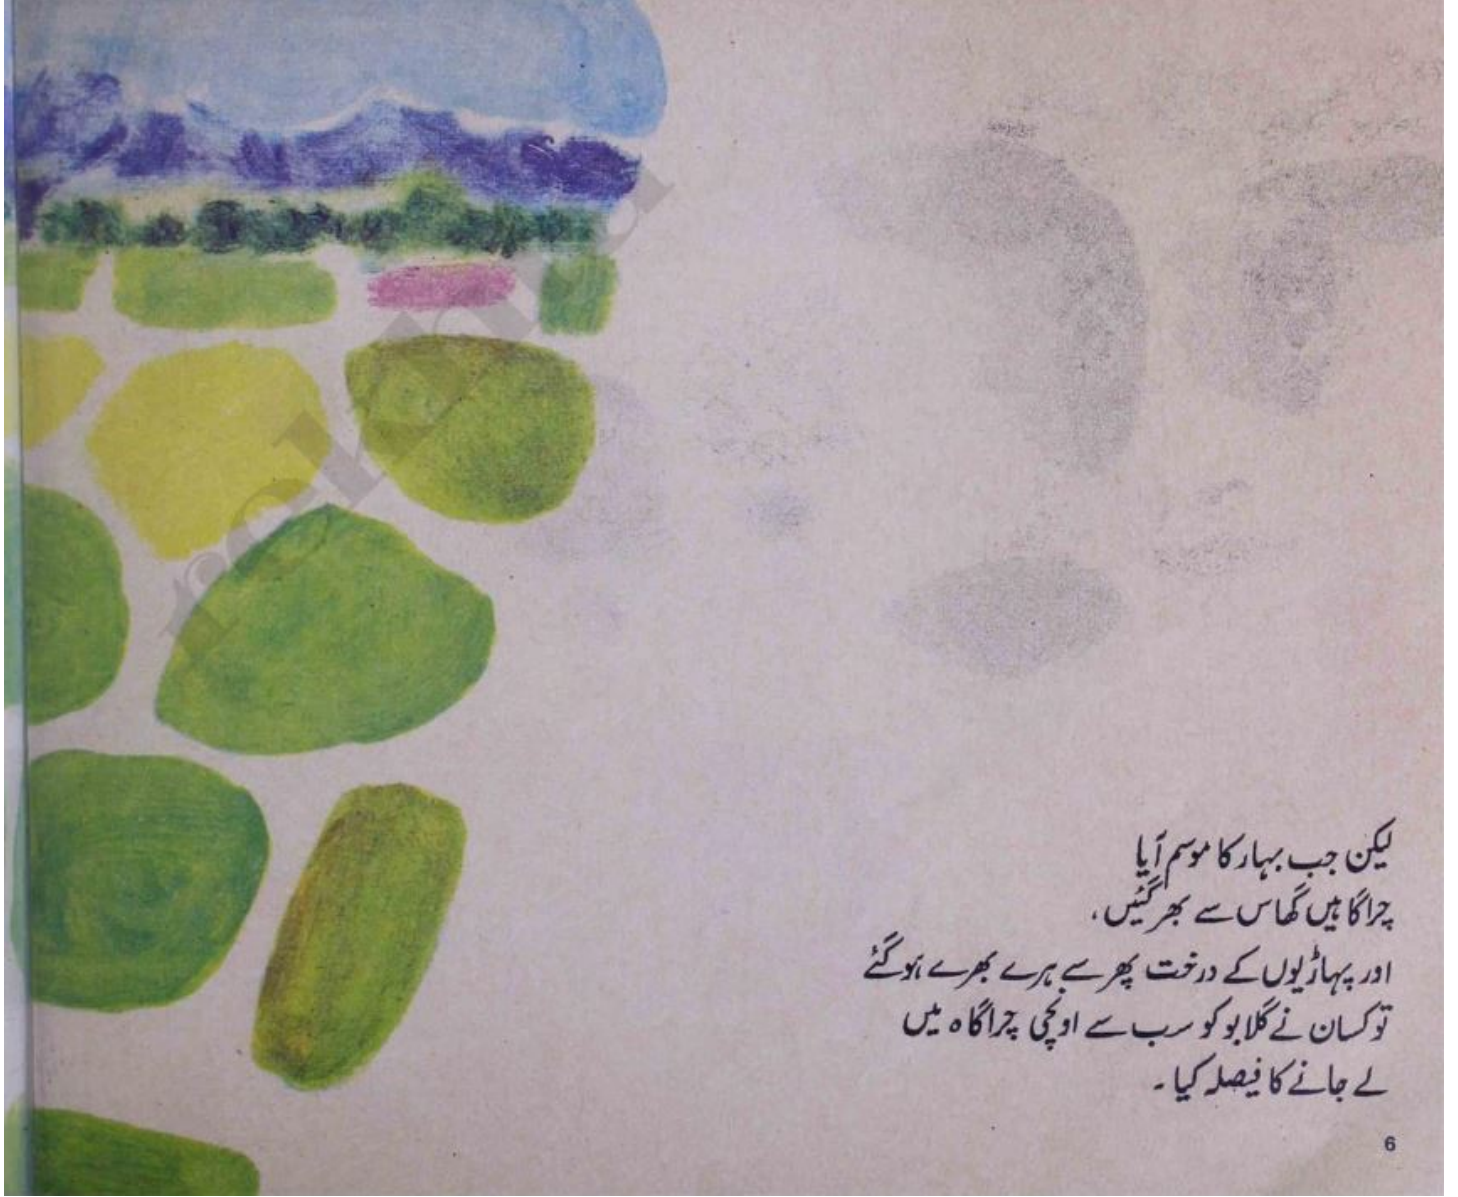 لیکن جب بہار کا موسم آیا
چراگاہیں گھاس سے بھر گئیں،
اور پہاڑیوں کے درخت پھر سے ہرے بھرے ہو گئے
تو کسان نے گلابو کو سب سے اونچی چراگاہ میں
لے جانے کا فیصلہ کیا ۔
6
rekhta